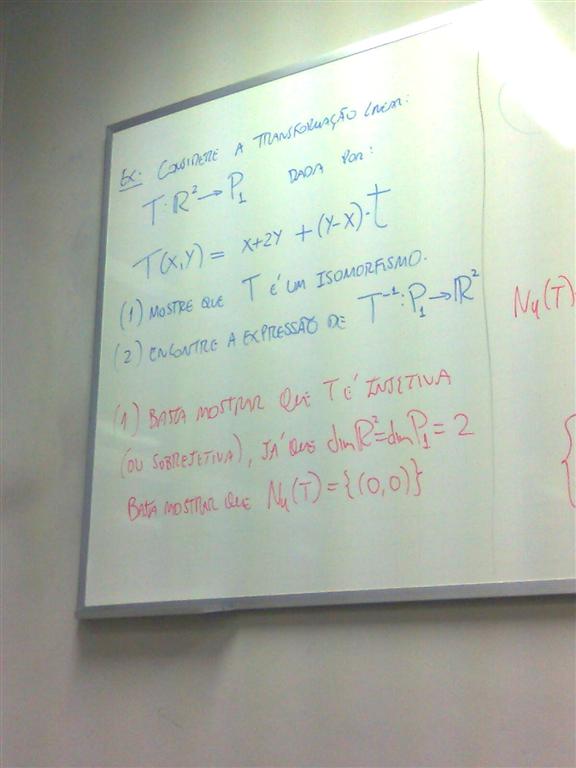 EX: CONSIDERE A TRANSFORMAÇÃO LINEAR:
T: ℝ² → P₁ DADA POR:
T(X,Y) = X+2Y + (Y-X)·t
(1) MOSTRE QUE T É UM ISOMORFISMO.
(2) ENCONTRE A EXPRESSÃO DE T⁻¹: P₁ → ℝ²
(1) BASTA MOSTRAR QUE T É INJETIVA
(OU SOBREJETIVA), JÁ QUE dim ℝ² = dim P₁ = 2
BASTA MOSTRAR QUE Nu(T) = {(0,0)}
Nu(T)
{